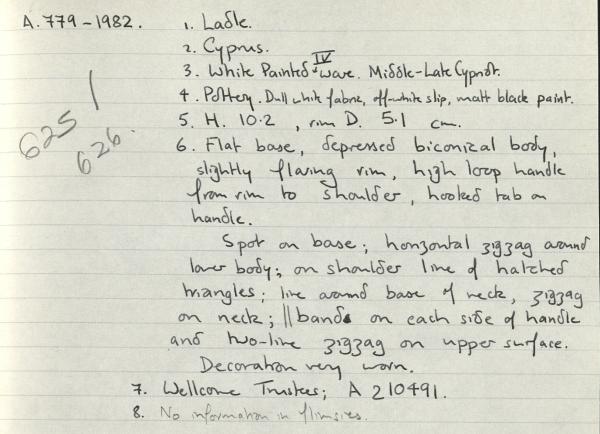 A.779-1982. 1. Ladle.
2. Cyprus.
3. White Painted IV ware. Middle-Late Cypriot.
4. Pottery. Dull white fabric, off-white slip, matt black paint.
5. H. 10.2, rim D. 5.1 cm.
6. Flat base, depressed biconical body,
slightly flaring rim, high loop handle
from rim to shoulder, hooked tab on
handle.
Spot on base; horizontal zigzag around
lower body; on shoulder line of hatched
triangles; line around base of neck, zigzag
on neck; || bands on each side of handle
and two-line zigzag on upper surface.
Decoration very worn.
7. Wellcome Trustees; A 210491.
8. No information in flimsies.
625
626.